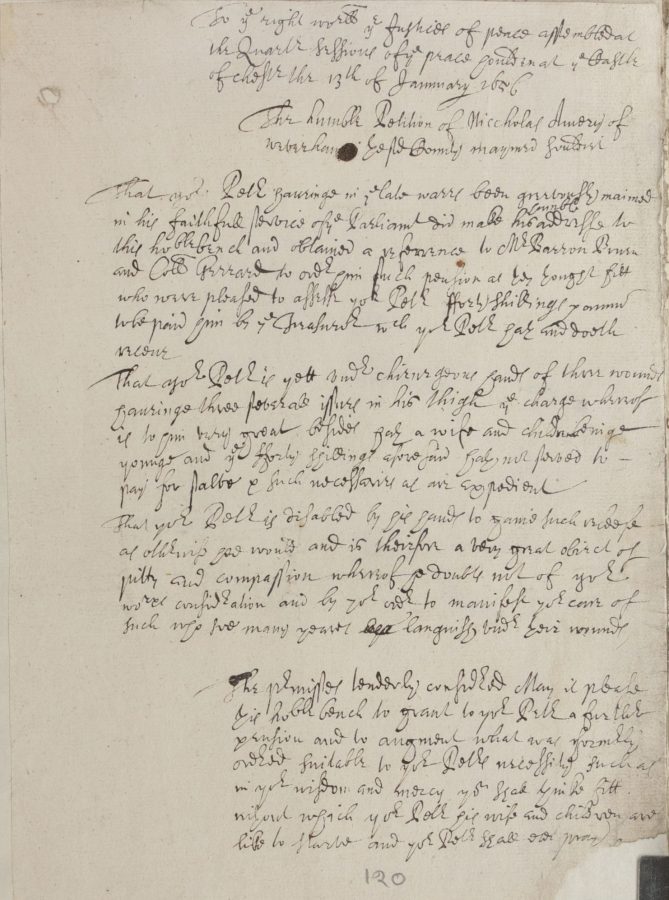 To ye right worll ye Justices of peace assembled at
the Quartr Sessions of ye peace houlden at ye Castle
of Chestr the 13th of Jannuary 1656
The humble Petition of Niccholas Amery of
weverham Countie maymed souldier
That yor Petr haveinge in ye late warrs been greevously maimed
in his faithfull service of ye Parliamt did make his humble addresse to
this noble bench and obtained a refference to Mr Barron
and Coll Gerrard to order him such pension as they thought fitt
who were pleased to assesse yor Petr fforty shillings p annum
to be paid him by ye Treasurer wch yor Petr hath and doeth
receive
That yor Petr is yett undr chirurgeons hands of three wounds
haveinge three severall issues in his thigh ye charge whereof
is to him very great besides hath a wife and children beinge
younge and ye fforty shillings aforesaid hath not served to
pay for salve & such necessaries as are expedient
That yor Petr is disabled by his hands to gaine such releefe
as otherwise hee would and is therefore a very great obiect of
pitty and compassion whereof he doubts not of yor
worps consideration and by yor order to manifest yor care of
such who soe many yeares languish undr their wounds
The p'misses tenderly considered May it please
this noble bench to grant to yor Petr a further
pension and to augment what was formerly
ordered suitable to yor Petrs necessity such as
in yor wisdom and mercy yee shall thinke fitt
without which yor Petr his wife and children are
like to starve and yor Petr shall ever pray
120